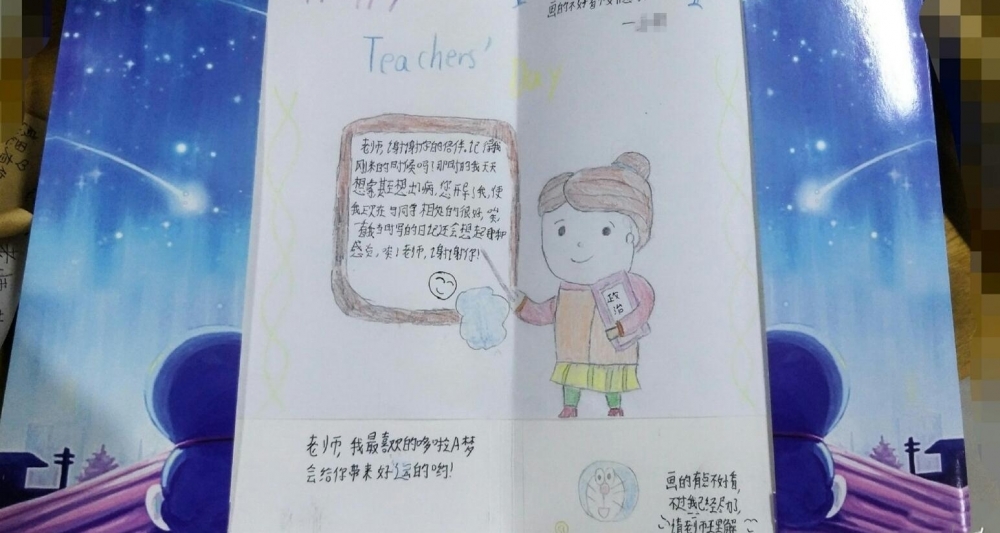 Happy
画的不好看
Teachers'
Day
老师,谢谢你的陪伴,记得我
刚来的时候吗?那时的我天天
想家甚至想出病,您开导了我,使
我现在与同学相处的很好,嘿,
看我当时写的日记还会想起
感觉,哎!老师,谢谢你!
政治
老师,我最喜欢的哆啦A梦
会给你带来好运的哟!
画的有点不好看,
不过我已经尽力了,
请老师理解